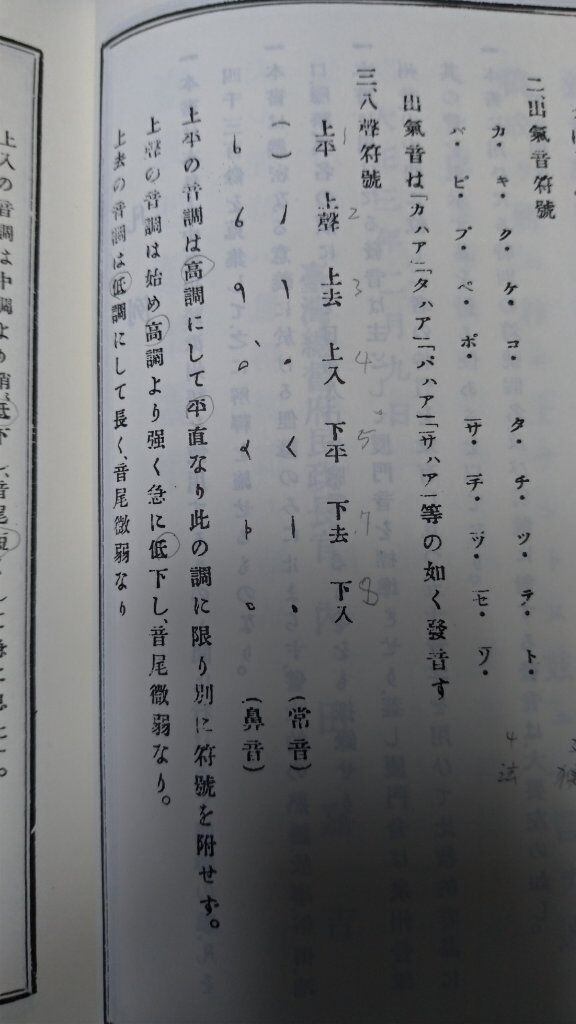 二、出氣音符號
カ・キ・ク・ケ・コ・タ・チ・ツ・テ・ト・
パ・ピ・プ・ペ・ポ・サ・チ・ツ・セ・ソ・
出氣音は「カハア」「タハア」「パハア」「サハア」等の如く發音す
三、八聲符號
上平 上聲 上去 上入 下平 下去 下入
1 2 3 4 5 7 8
(常音)
(鼻音)
上平の音調は高調にして平直なり此の調に限り別に符號を附せず。
上聲の音調は始め高調より强く急に低下し、音尾微弱なり。
上去の音調は低調にして長く、音尾微弱なり
上入の音調は中調よ
4 法